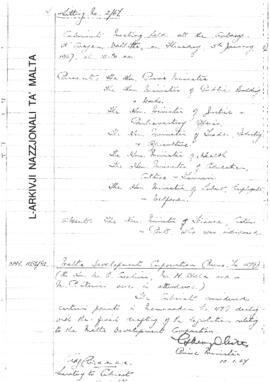 Sitting No. 2/67
Cabinet Meeting held at the Auberge
d'Aragon, Valletta, on Thursday, 5th January
1967, at 10.30 am
Present: The Hon. Prime Minister
The Hon. Minister of Public Building
& Works
The Hon. Minister of Justice &
Parliamentary Affairs
The Hon. Minister of Trade, Industry
& Agriculture
The Hon. Minister of Health
The Hon. Minister of Education,
Culture & Tourism
The Hon. Minister of Labour, Employment
& Welfare.
Absent: The Hon. Minister of Finance, Customs
& Port who was indisposed
Malta Development Corporation (Memo. No. 479)
were in attendance)
The Cabinet considered
certain points in Memorandum No 479 dealing
with the drafting of the legislation relating
to the Malta Development Corporation
Prime Minister
10.1.67
Secretary to Cabinet
L-ARKIVJI NAZZJONALI TA' MALTA